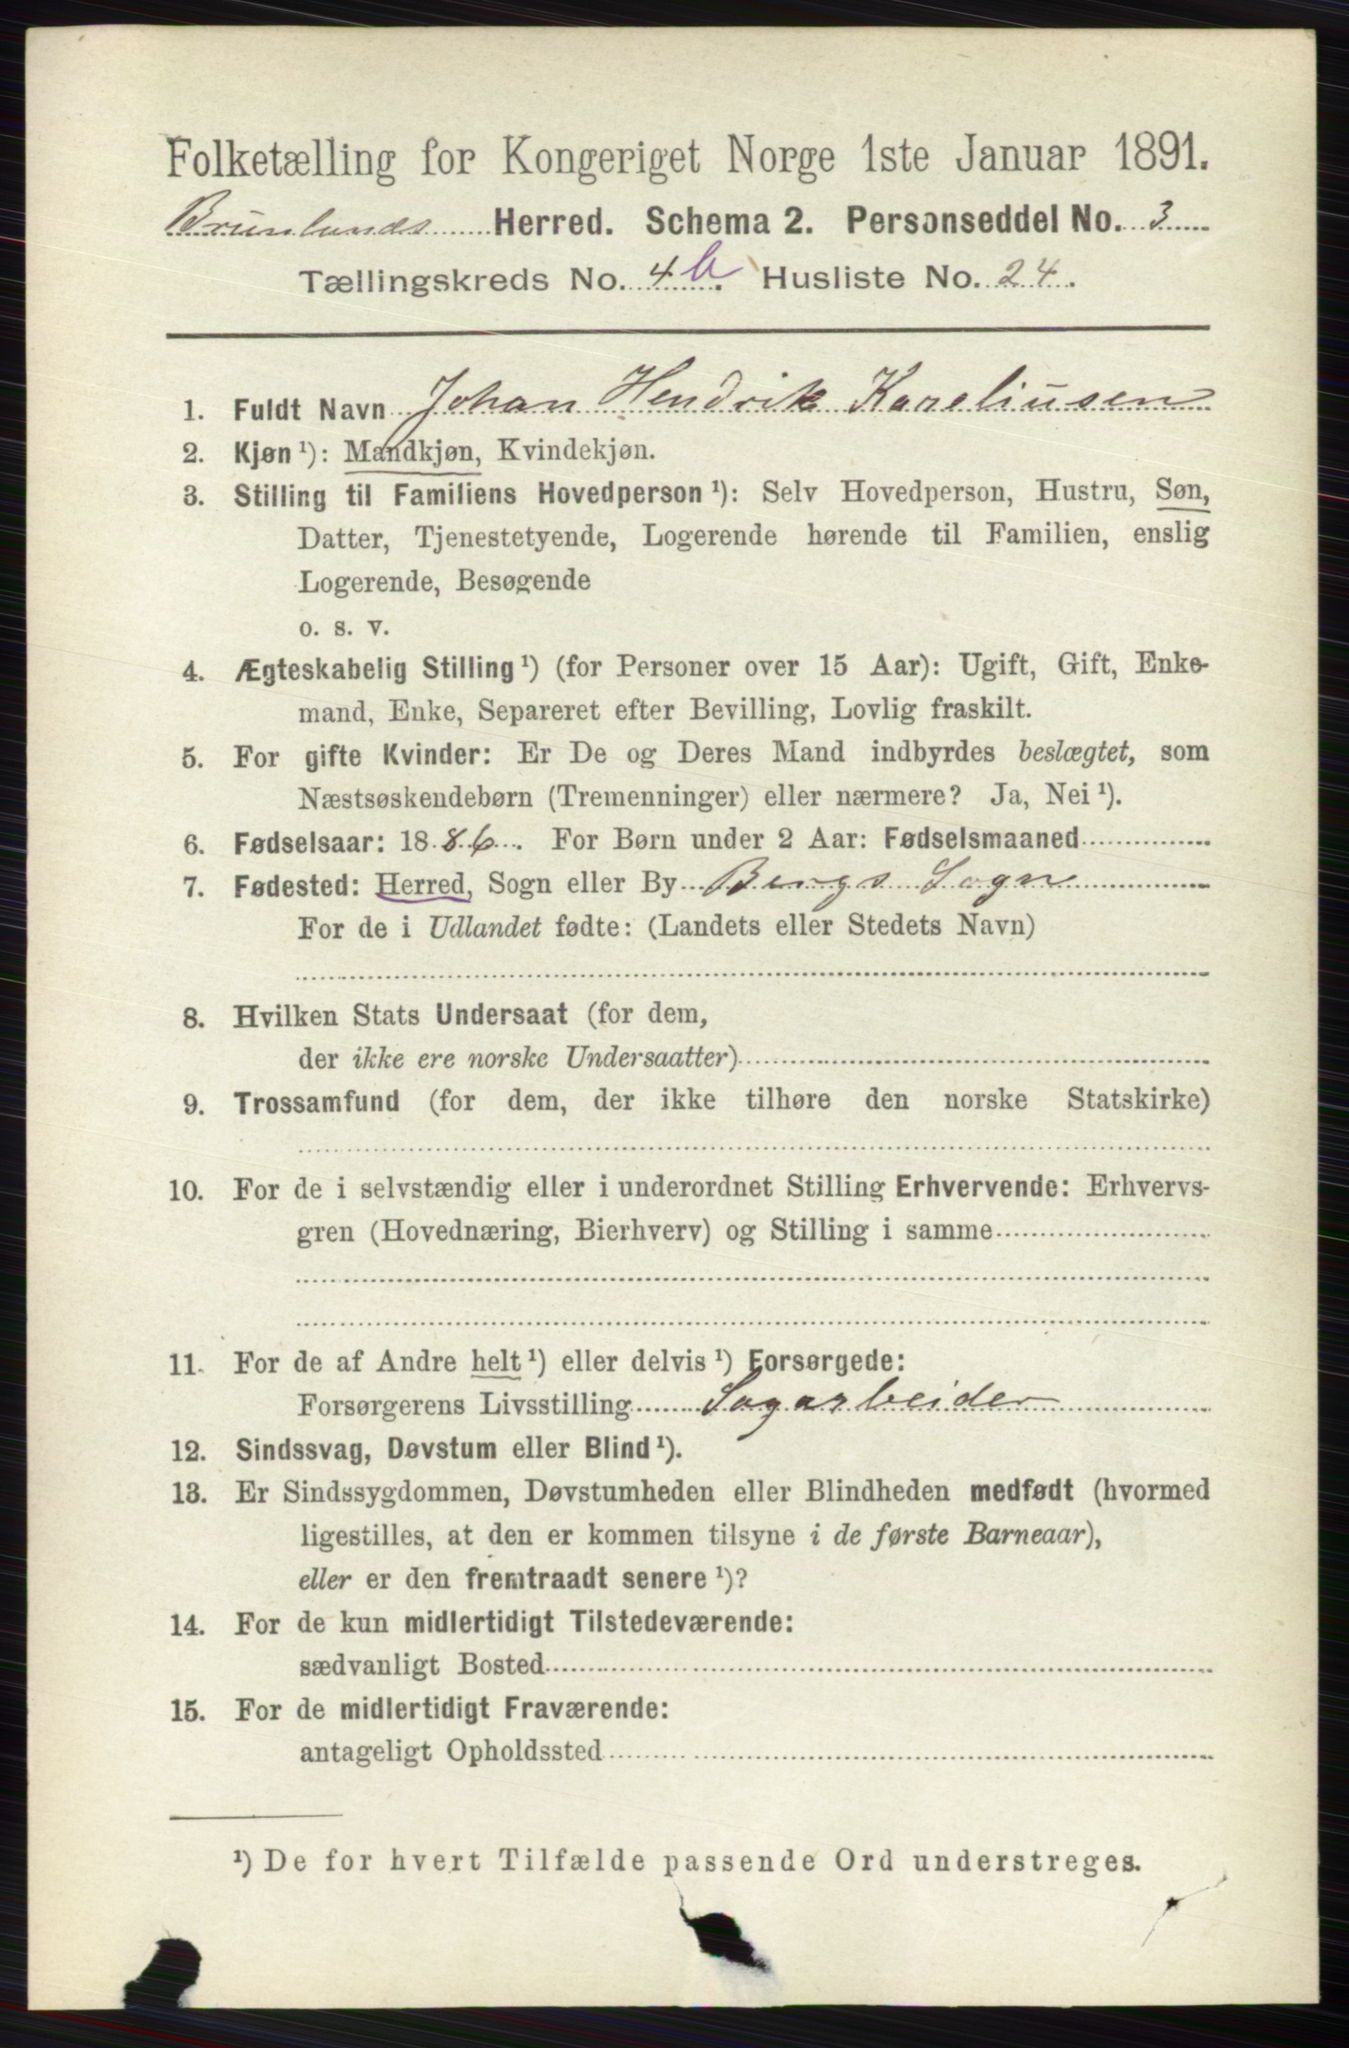 Folketælling for Kongeriget Norge 1ste Januar 1891.
Brunlunds Herred. Schema 2. Personseddel No. 3
Tællingskreds No. 4 b. Husliste No. 24.
1. Fuldt Navn Johan Hendrik Kareliusen
2. Kjøn ¹): Mandkjøn, Kvindekjøn.
3. Stilling til Familiens Hovedperson ¹): Selv Hovedperson, Hustru, Søn,
Datter, Tjenestetyende, Logerende hørende til Familien, enslig
Logerende, Besøgende
o. s. v.
4. Ægteskabelig Stilling ¹) (for Personer over 15 Aar): Ugift, Gift, Enke-
mand, Enke, Separeret efter Bevilling, Lovlig fraskilt.
5. For gifte Kvinder: Er De og Deres Mand indbyrdes beslægtet, som
Næstsøskendebørn (Tremenninger) eller nærmere? Ja, Nei ¹).
6. Fødselsaar: 1886. For Børn under 2 Aar: Fødselsmaaned
7. Fødested: Herred, Sogn eller By Bergs Sogn
For de i Udlandet fødte: (Landets eller Stedets Navn)
8. Hvilken Stats Undersaat (for dem,
der ikke ere norske Undersaatter)
9. Trossamfund (for dem, der ikke tilhøre den norske Statskirke)
10. For de i selvstændig eller i underordnet Stilling Erhvervende: Erhvervs-
gren (Hovednæring, Bierhverv) og Stilling i samme
11. For de af Andre helt ¹) eller delvis ¹) Forsørgede:
Forsørgerens Livsstilling Sagarbeider
12. Sindssvag, Døvstum eller Blind ¹).
13. Er Sindssygdommen, Døvstumheden eller Blindheden medfødt (hvormed
ligestilles, at den er kommen tilsyne i de første Barneaar),
eller er den fremtraadt senere ¹)?
14. For de kun midlertidigt Tilstedeværende:
sædvanligt Bosted
15. For de midlertidigt Fraværende:
antageligt Opholdssted
¹) De for hvert Tilfælde passende Ord understreges.